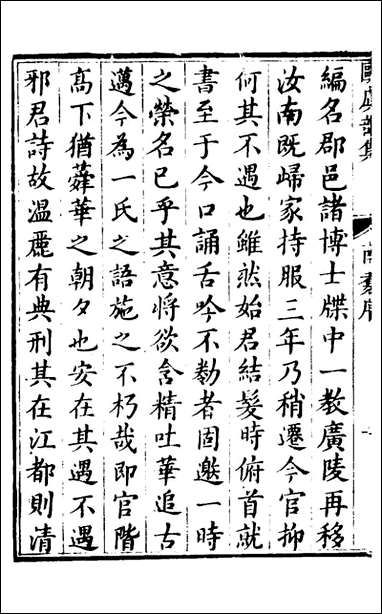 編名郡邑諸博士牒中一教廣陵再移
汝南既歸家持服三年乃稍遷今官抑
何其不遇也雖然始君結髮時俯首就
書至于今口誦舌吟不勌者固邀一時
之榮名已乎其意將欲含精吐華追古
邁今為一氏之語施之不朽哉即官階
高下猶蕣華之朝夕也安在其遇不遇
邪君詩故溫麗有典刑其在江都則清